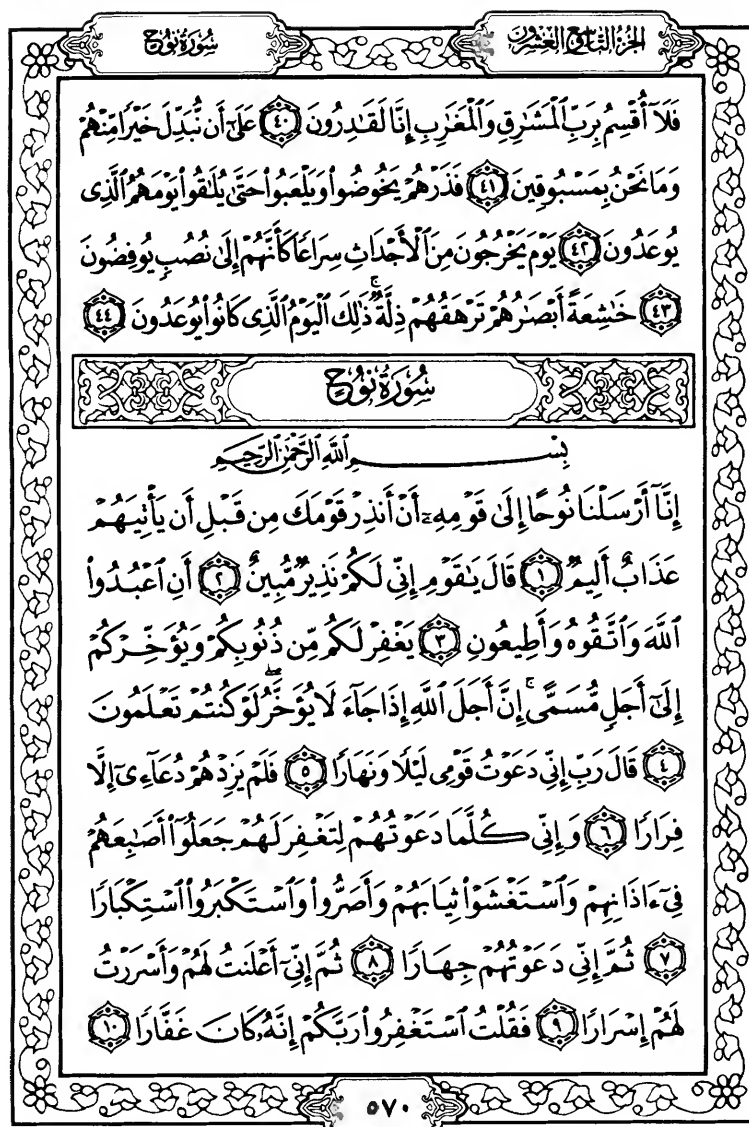 الجزء التاسع والعشرون
سورة نوح
فَلَآ أُقْسِمُ بِرَبِّ ٱلْمَشَٰرِقِ وَٱلْمَغَٰرِبِ إِنَّا لَقَٰدِرُونَ ٤٠ عَلَىٰٓ أَن نُّبَدِّلَ خَيْرًا مِّنْهُمْ
وَمَا نَحْنُ بِمَسْبُوقِينَ ٤١ فَذَرْهُمْ يَخُوضُوا۟ وَيَلْعَبُوا۟ حَتَّىٰ يُلَٰقُوا۟ يَوْمَهُمُ ٱلَّذِى
يُوعَدُونَ ٤٢ يَوْمَ يَخْرُجُونَ مِنَ ٱلْأَجْدَاثِ سِرَاعًا كَأَنَّهُمْ إِلَىٰ نُصُبٍ يُوفِضُونَ
٤٣ خَٰشِعَةً أَبْصَٰرُهُمْ تَرْهَقُهُمْ ذِلَّةٌ ۚ ذَٰلِكَ ٱلْيَوْمُ ٱلَّذِى كَانُوا۟ يُوعَدُونَ ٤٤
سورة نوح
بِسْمِ ٱللَّهِ ٱلرَّحْمَٰنِ ٱلرَّحِيمِ
إِنَّآ أَرْسَلْنَا نُوحًا إِلَىٰ قَوْمِهِۦٓ أَنْ أَنذِرْ قَوْمَكَ مِن قَبْلِ أَن يَأْتِيَهُمْ
عَذَابٌ أَلِيمٌ ١ قَالَ يَٰقَوْمِ إِنِّى لَكُمْ نَذِيرٌ مُّبِينٌ ٢ أَنِ ٱعْبُدُوا۟
ٱللَّهَ وَٱتَّقُوهُ وَأَطِيعُونِ ٣ يَغْفِرْ لَكُم مِّن ذُنُوبِكُمْ وَيُؤَخِّرْكُمْ
إِلَىٰٓ أَجَلٍ مُّسَمًّى ۚ إِنَّ أَجَلَ ٱللَّهِ إِذَا جَآءَ لَا يُؤَخَّرُ ۖ لَوْ كُنتُمْ تَعْلَمُونَ
٤ قَالَ رَبِّ إِنِّى دَعَوْتُ قَوْمِى لَيْلًا وَنَهَارًا ٥ فَلَمْ يَزِدْهُمْ دُعَآءِىٓ إِلَّا
فِرَارًا ٦ وَإِنِّى كُلَّمَا دَعَوْتُهُمْ لِتَغْفِرَ لَهُمْ جَعَلُوٓا۟ أَصَٰبِعَهُمْ
فِىٓ ءَاذَانِهِمْ وَٱسْتَغْشَوْا۟ ثِيَابَهُمْ وَأَصَرُّوا۟ وَٱسْتَكْبَرُوا۟ ٱسْتِكْبَارًا
٧ ثُمَّ إِنِّى دَعَوْتُهُمْ جِهَارًا ٨ ثُمَّ إِنِّىٓ أَعْلَنتُ لَهُمْ وَأَسْرَرْتُ
لَهُمْ إِسْرَارًا ٩ فَقُلْتُ ٱسْتَغْفِرُوا۟ رَبَّكُمْ إِنَّهُۥ كَانَ غَفَّارًا ١٠
٥٧٠